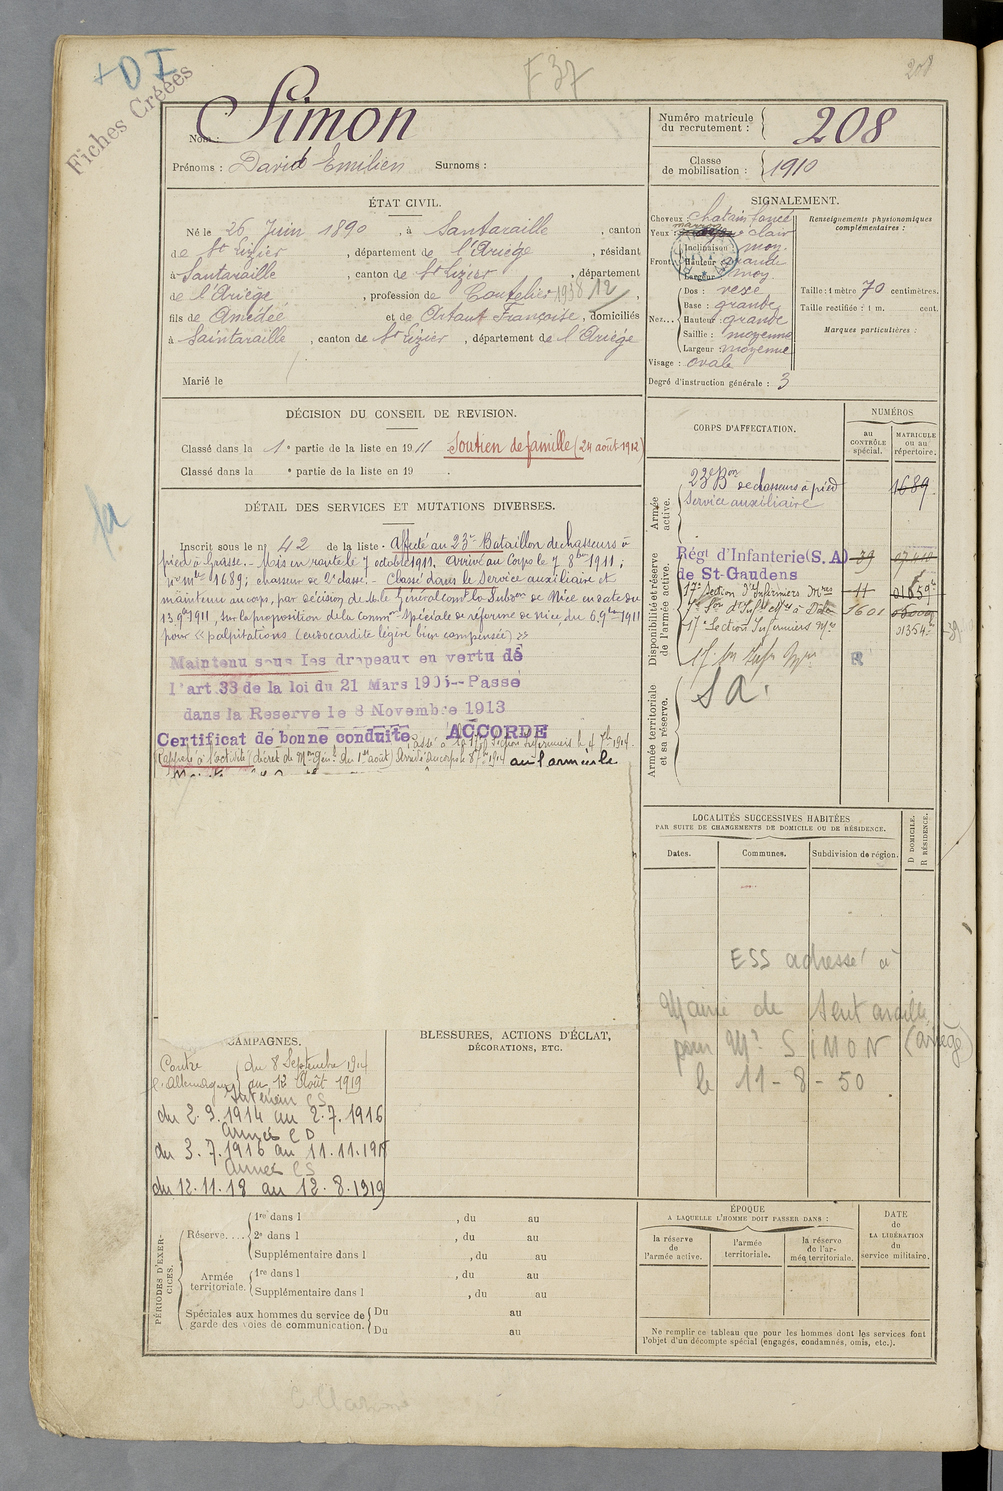 + D I
Fiches Créées
F 37
208
Nom : Simon
Prénoms : David Emilien Surnoms :
Numéro matricule du recrutement : 208
Classe de mobilisation : 1910
ÉTAT CIVIL.
Né le 26 Juin 1890, à Santaraille, canton
de St Lizier, département de l'Ariège, résidant
à Santaraille, canton de St Lizier, département
de l'Ariège, profession de Coutelier 1938 12,
fils de Amédée et de Artaut Françoise, domiciliés
à Saintaraille, canton de St Lizier, département de l'Ariège
Marié le
SIGNALEMENT.
Cheveux : chatain foncé
Yeux : marron clair
Front : Inclinaison : moy.
Hauteur : grande
Largeur : moy
Nez... Dos : vexe
Base : grande
Hauteur : grande
Saillie : moyenne
Largeur moyenne
Visage : ovale
Degré d'instruction générale : 3
Renseignements physionomiques
complémentaires :
Taille : 1 mètre 70 centimètres.
Taille rectifiée : 1 m. cent.
Marques particulières :
DÉCISION DU CONSEIL DE REVISION.
Classé dans la 1e partie de la liste en 1911 Soutien de famille (24 août 1912)
Classé dans la e partie de la liste en 19 .
DÉTAIL DES SERVICES ET MUTATIONS DIVERSES.
Inscrit sous le no 42 de la liste. Affecté au 23e Bataillon de chasseurs à
pied à Grasse. Mis en route le 7 octobre 1911. Arrivé au Corps le 7 8bre 1911 ;
no mle 1689 ; chasseur de 2e classe. - Classé dans le Service auxiliaire et
maintenu au corps, par décision de Mr le Général comt la Subon de Nice en date du
13 9bre 1911, sur la proposition de la Common Spéciale de réforme de Nice du 6 9bre 1911
pour « palpitations (endocardite légère bien compensée) »
Maintenu sous les drapeaux en vertu de
l'art. 33 de la loi du 21 Mars 1905--Passé
dans la Reserve le 8 Novembre 1913
Certificat de bonne conduite. ACCORDÉ
Passé à la 17e Section Infirmiers le 4 7bre 1914.
Rappelé à l'activité (décret de Mon Génle du 1er août) Arrivé au corps le 8 7bre 1914
CORPS D'AFFECTATION.
NUMÉROS
au CONTRÔLE spécial.
MATRICULE ou au répertoire.
Armée active.
23e Bon de chasseurs à pied 1689
Service auxiliaire
Disponibilité et réserve de l'armée active.
Régt d'Infanterie (S. A) 39
de St-Gaudens
17e Section d'Infirmiers Mres 11
1601
17e Section Infirmiers Mres 01354
Armée territoriale et sa réserve.
S A.
LOCALITÉS SUCCESSIVES HABITÉES
PAR SUITE DE CHANGEMENTS DE DOMICILE OU DE RÉSIDENCE.
Dates. Communes. Subdivision de région. D DOMICILE. R RÉSIDENCE.
ESS adressé à
Mairie de Sentaraille
pour Mr SIMON (Ariège)
le 11-8-50
CAMPAGNES.
Contre l'Allemagne du 8 Septembre 1914
au 12 Août 1919
Intérieur CS
du 2.9.1914 au 2.7.1916
Armées CD
du 3.7.1916 au 11.11.1918
Armées CS
du 12.11.18 au 12.8.1919
BLESSURES, ACTIONS D'ÉCLAT,
DÉCORATIONS, ETC.
PÉRIODES D'EXERCICES.
Réserve.... 1re dans l , du au
2e dans l , du au
Supplémentaire dans l , du au
Armée territoriale. 1re dans l , du au
Supplémentaire dans l , du au
Spéciales aux hommes du service de garde des voies de communication. Du au
Du au
ÉPOQUE
A LAQUELLE L'HOMME DOIT PASSER DANS :
la réserve de l'armée active. l'armée territoriale. la réserve de l'armée territoriale.
DATE de LA LIBÉRATION du service militaire.
Ne remplir ce tableau que pour les hommes dont les services font
l'objet d'un décompte spécial (engagés, condamnés, omis, etc.).